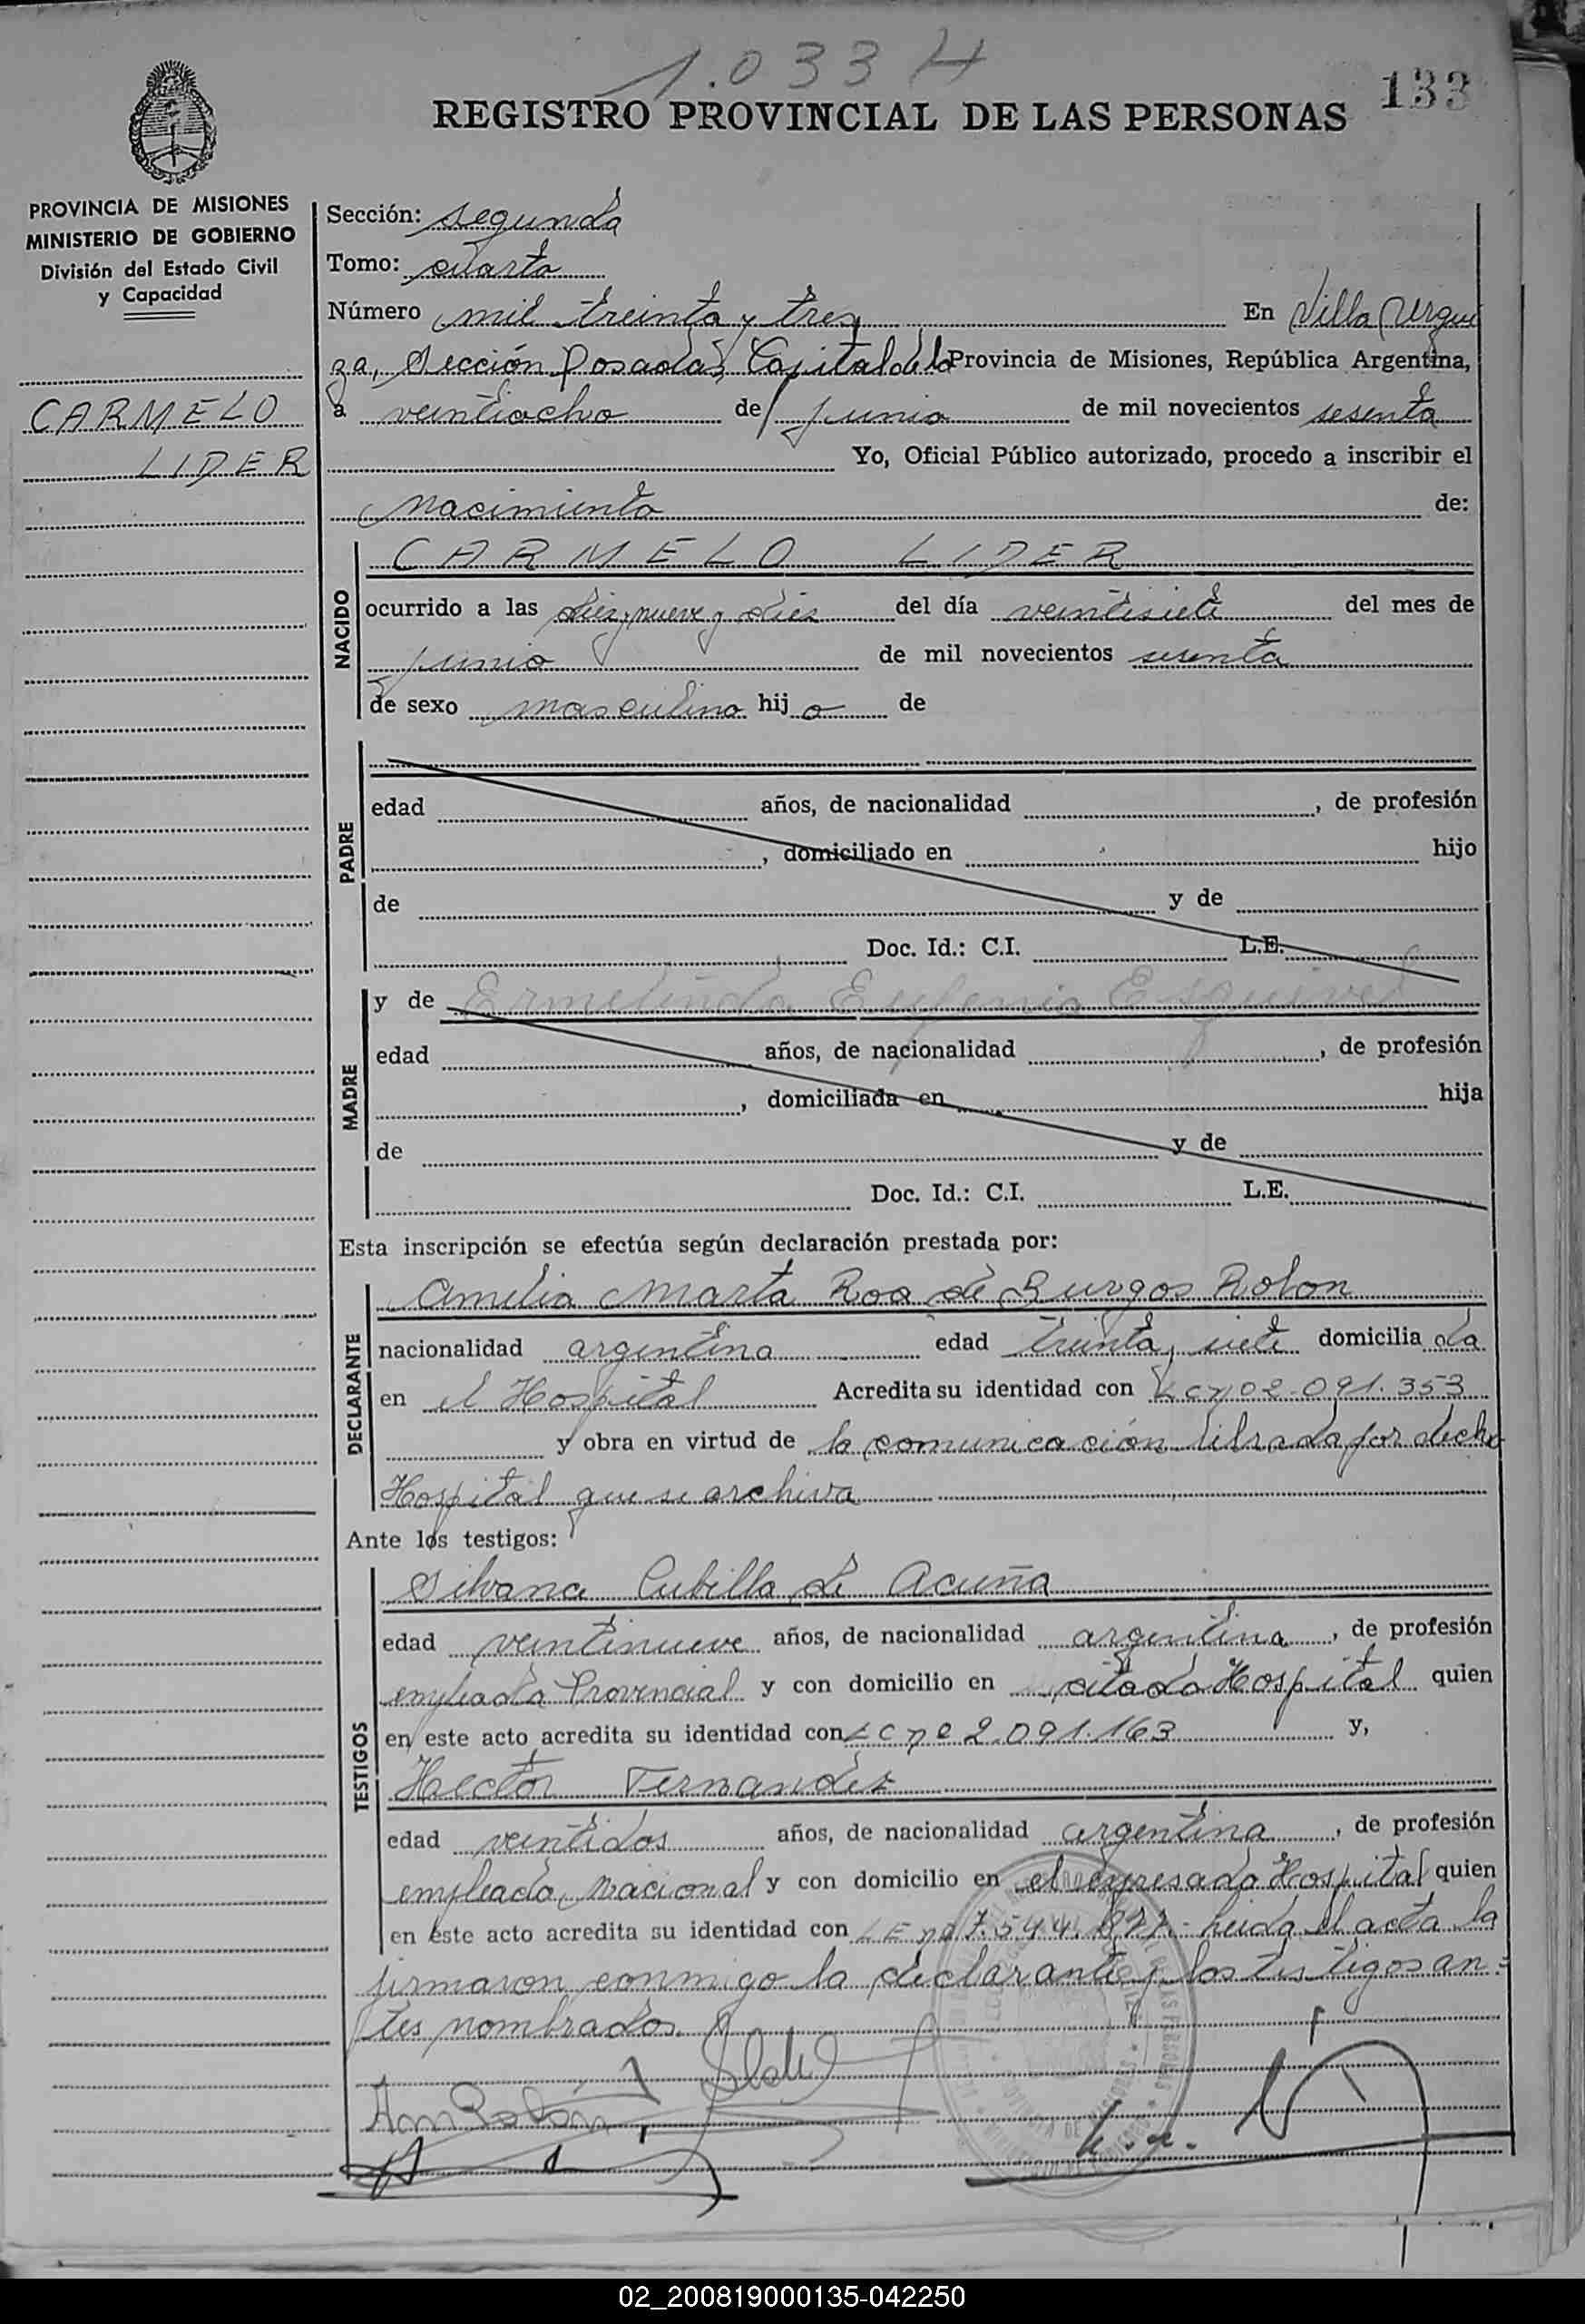 1.033 H
133
REGISTRO PROVINCIAL DE LAS PERSONAS
PROVINCIA DE MISIONES
MINISTERIO DE GOBIERNO
División del Estado Civil
y Capacidad
CARMELO
LIDER
Sección: segunda
Tomo: cuarto
Número mil treinta y tres En Villa Urqui
za, Sección Posadas, Capital de la Provincia de Misiones, República Argentina,
a veintiocho de junio de mil novecientos sesenta
Yo, Oficial Público autorizado, procedo a inscribir el
nacimiento de:
NACIDO
CARMELO LIDER
ocurrido a las diez y nueve y diez del día veintisiete del mes de
junio de mil novecientos sesenta
de sexo masculino hijo de
PADRE
edad años, de nacionalidad , de profesión
, domiciliado en hijo
de y de
Doc. Id.: C.I. L.E.
MADRE
y de Ermelinda Eufemia Esquivel
edad años, de nacionalidad , de profesión
, domiciliada en hija
de y de
Doc. Id.: C.I. L.E.
Esta inscripción se efectúa según declaración prestada por:
DECLARANTE
Amelia Marta Roa de Burgos Rolon
nacionalidad argentina edad treinta y siete domiciliada
en el Hospital Acredita su identidad con L C nº 02.091.353
y obra en virtud de la comunicación librada por dicho
Hospital que se archiva
Ante los testigos:
TESTIGOS
Silvana Cubilla de Acuña
edad veintinueve años, de nacionalidad argentina, de profesión
empleada Provincial y con domicilio en citado Hospital quien
en este acto acredita su identidad con L C nº 2.091.163 y,
Hector Fernandez
edad veintidos años, de nacionalidad argentina, de profesión
empleado Nacional y con domicilio en el expresado Hospital quien
en este acto acredita su identidad con L E nº 7.544.877.- Leida el acta la
firmaron conmigo la declarante y los testigos an=
tes nombrados.
02_200819000135-042250